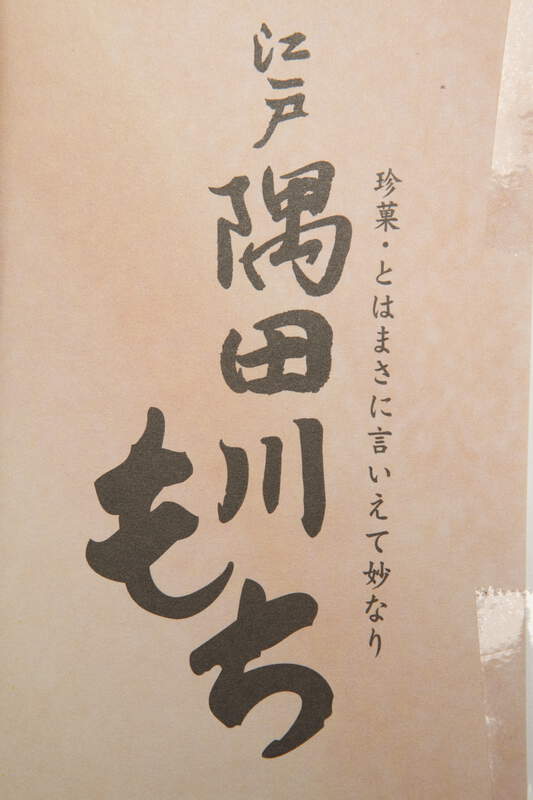 珍菓・とはまさに言いえて妙なり
江戸
隅田川
もち